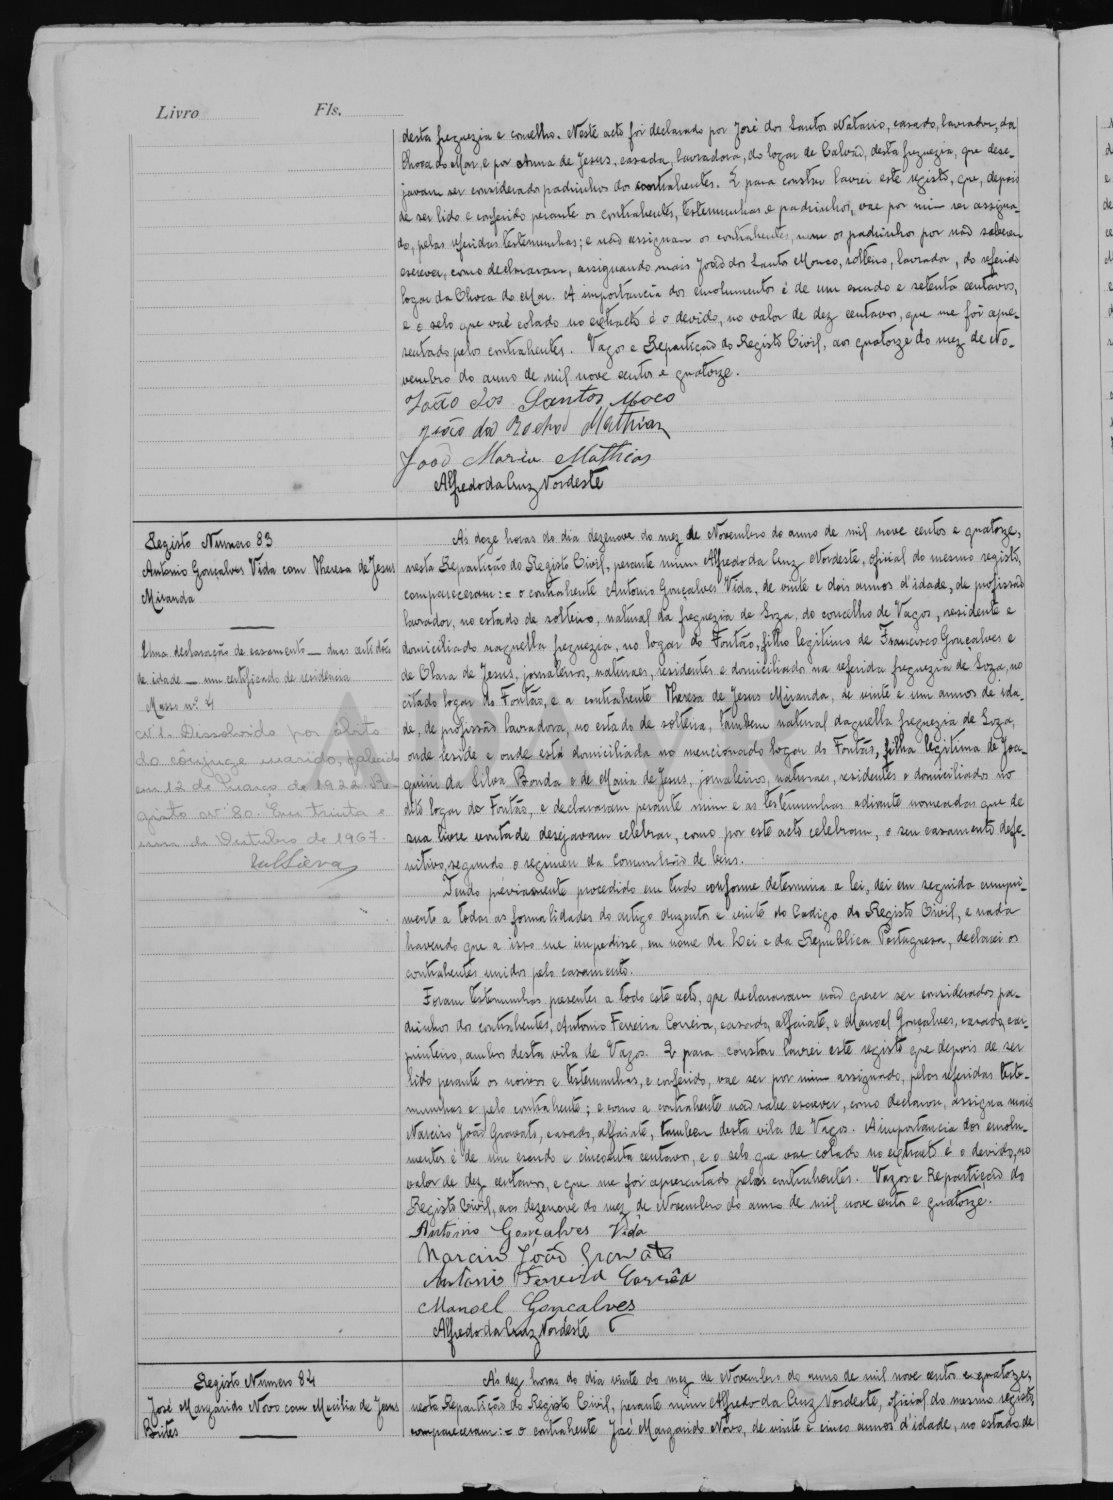 Livro Fls.
desta freguezia e concelho. Neste acto foi declarado por José dos Santos Natario, casado, lavrador, da
Choca do Mar, e por Anna de Jesus, casada, lavradora, do logar de Calvão, desta freguezia, que dese-
javam ser considerados padrinhos dos contrahentes. E para constar lavrei este registo, que, depois
de ser lido e conferido perante os contrahentes, testemunhas e padrinhos, vae por mim ser assigna-
do, pelas referidas testemunhas; e não assignam os contrahentes, nem os padrinhos por não saberem
escrever, como declararam, assignando mais João dos Santos Moço, solteiro, lavrador, do referido
logar da Choca do Mar. A importancia dos emolumentos é de um escudo e setenta centavos,
e o selo que vae colado no extracto é o devido, no valor de dez centavos, que me foi apre-
sentado pelos contrahentes. Vagos e Repartição do Registo Civil, aos quatorze do mez de No-
vembro do anno de mil nove centos e quatorze.
João dos Santos Moço
João da Rocha Mathias
João Maria Mathias
Alfredo da Cruz Nordeste
Registo Numero 83
Antonio Gonçalves Vida com Theresa de Jesus
Miranda
Uma declaração de casamento — duas certidões
de idade — um certificado de residencia
Masso nº 4
Nº 1. Dissolvido por óbito
do cônjuge marido, falecido
em 12 de Março de 1922. Re
gisto nº 80. Em trinta e
um de Outubro de 1967.
Ás doze horas do dia dezenove do mez de Novembro do anno de mil nove centos e quatorze,
nesta Repartição do Registo Civil, perante mim Alfredo da Cruz Nordeste, oficial do mesmo registo,
compareceram:= o contrahente Antonio Gonçalves Vida, de vinte e dois annos d'idade, de profissão
lavrador, no estado de solteiro, natural da freguezia de Soza, do concelho de Vagos, residente e
domiciliado naquella freguezia, no logar do Fontão, filho legitimo de Francisco Gonçalves e
de Clara de Jesus, jornaleiros, naturaes, residentes e domiciliados na referida freguezia de Soza, no
citado logar do Fontão, e a contrahente Theresa de Jesus Miranda, de vinte e um annos de ida-
de, de profissão lavradora, no estado de solteira, tambem natural daquella freguezia de Soza,
onde reside e onde está domiciliada no mencionado logar do Fontão, filha legitima de Joa-
quim da Silva Bonda e de Maria de Jesus, jornaleiros, naturaes, residentes e domiciliados no
dito logar do Fontão, e declararam perante mim e as testemunhas adiante nomeadas que de
sua livre vontade desejavam celebrar, como por este acto celebram, o seu casamento defe-
nitivo, segundo o regimen da comunhão de bens.
Tendo préviamente procedido em tudo conforme determina a lei, dei em seguida cumpri-
mento a todas as formalidades do artigo duzentos e vinte do Codigo do Registo Civil, e nada
havendo que a isso me impedisse, em nome da Lei e da Republica Portuguesa, declarei os
contrahentes unidos pelo casamento.
Foram testemunhas presentes a todo este acto, que declararam não querer ser considerados pa-
drinhos dos contrahentes, Antonio Ferreira Correia, casado, alfaiate, e Manoel Gonçalves, casado, car-
pinteiro, ambos desta vila de Vagos. E para constar lavrei este registo que depois de ser
lido perante os noivos e testemunhas, e conferido, vae ser por mim assignado, pelas referidas teste-
munhas e pelo contrahente; e como a contrahente não sabe escrever, como declarou, assigna mais
Narciso João Gravato, casado, alfaiate, tambem desta vila de Vagos. A importancia dos emolu-
mentos é de um escudo e cincoenta centavos, e o selo que vae colado no extracto é o devido, no
valor de dez centavos, e que me foi apresentado pelos contrahentes. Vagos e Repartição do
Registo Civil, aos dezenove do mez de Novembro do anno de mil nove centos e quatorze.
Antonio Gonçalves Vida
Narciso João Gravato
Antonio Ferreira Corrêa
Manoel Gonçalves
Alfredo da Cruz Nordeste
Registo Numero 84
José Margarido Novo com Mecilia de Jesus
Brites
Ás dez horas do dia vinte do mez de Novembro do anno de mil nove centos e quatorze,
nesta Repartição do Registo Civil, perante mim Alfredo da Cruz Nordeste, oficial do mesmo registo,
compareceram:= o contrahente José Margarido Novo, de vinte e cinco annos d'idade, no estado de